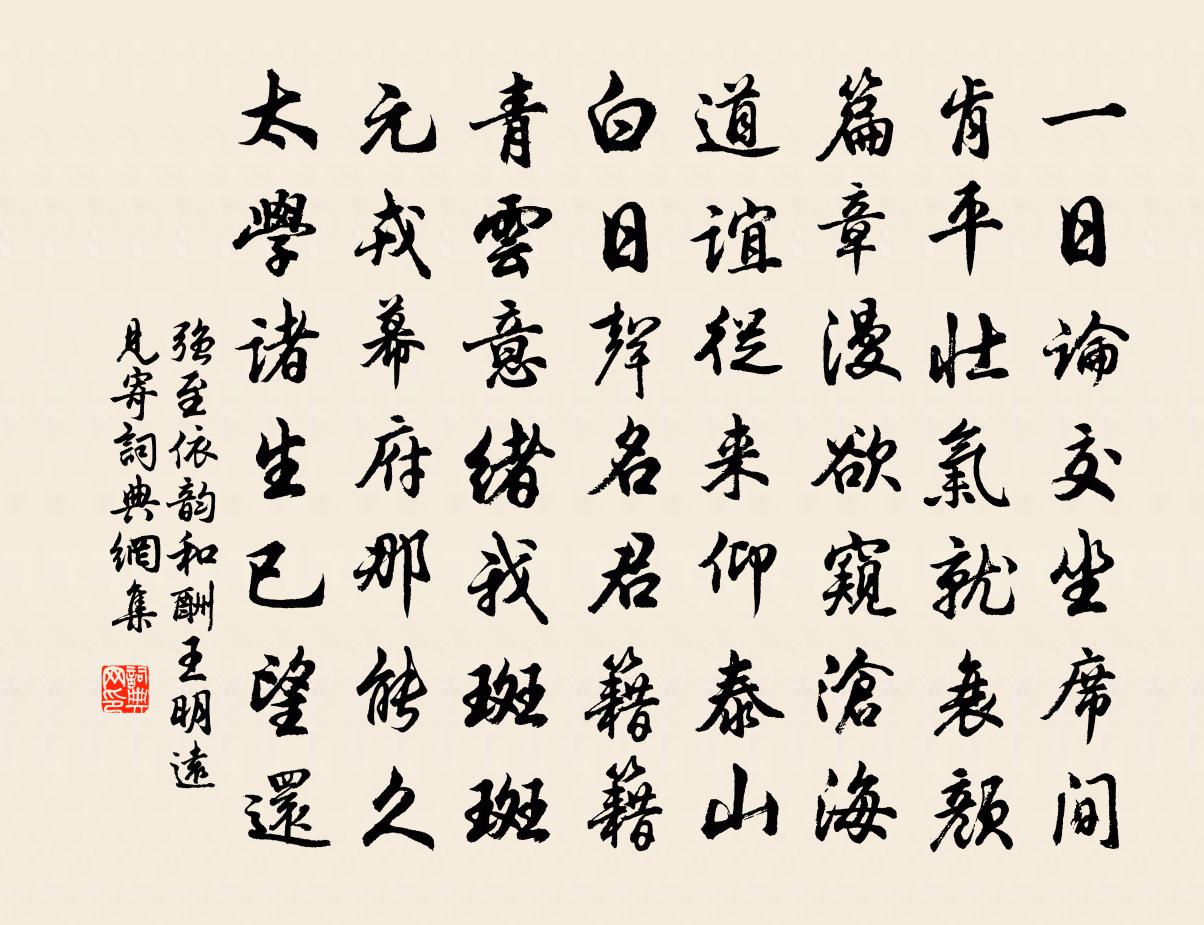 一日論交坐席间
肯平壮氣就衰颜
篇章漫欲窺滄海
道谊從来仰泰山
白日聲名君籍籍
青雲意緒我斑斑
元戎幕府那能久
太學諸生已望還
強至依韵和酬王明遠
見寄詞典網集
詞典网印